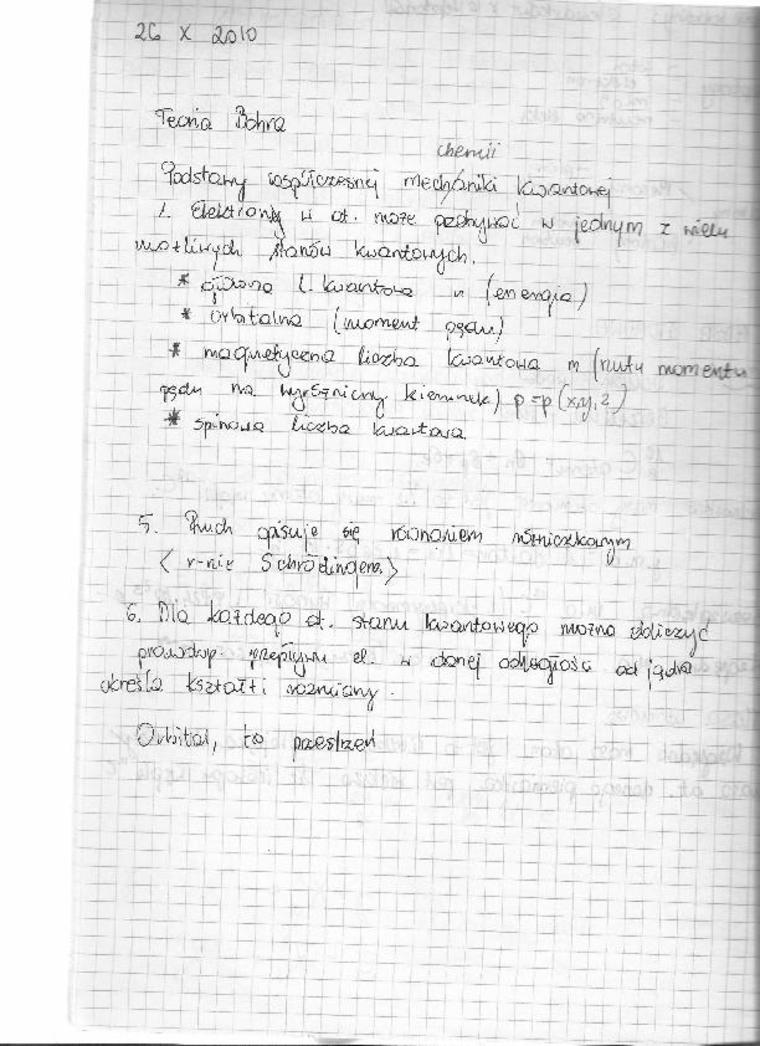 26 X 2010
Teoria Bohra
chemii
Podstawy współczesnej mechaniki kwantowej
1. Elektrony w at. może przebywać w jednym z wielu
możliwych stanów kwantowych.
* główna l. kwantowa n (energia)
* orbitalna (moment pędu)
* magnetyczna liczba kwantowa m (rzutu momentu
pędu na wyróżniony kierunek) p=p(x,y,z)
* spinowa liczba kwantowa
5. Ruch opisuje się równaniem różniczkowym
< r-nie Schrödingera >
6. Dla każdego at. stanu kwantowego można obliczyć
prawdop. el. w danej odległości od jądra
określa kształt i rozmiary.
Orbital, to przestrzeń